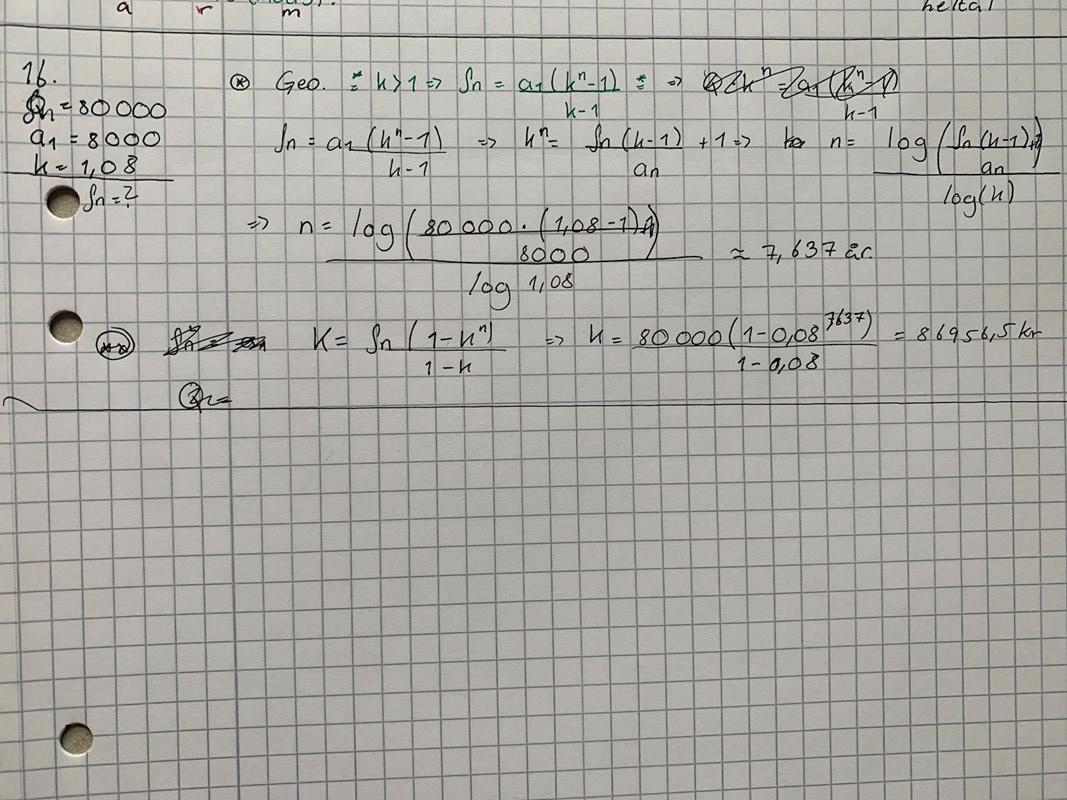 a r m heltal
16.
Sn = 80 000
a1 = 8000
k = 1,08
Sn = ?
⊛ Geo. * k > 1 => Sn = a1 (k^n - 1) / k-1 * =>
Sn = a1 (k^n - 1) / k-1 => k^n = Sn (k-1) / an + 1 => n = log( Sn (k-1)+1 / an ) / log(k)
=> n = log( 80 000 · (1,08 - 1)+1 / 8000 ) / log 1,08 ≈ 7,637 år
(**) K = Sn (1 - k^n) / 1 - k => K = 80 000 (1 - 0,08^7,637) / 1 - 0,08 = 86956,5 kr